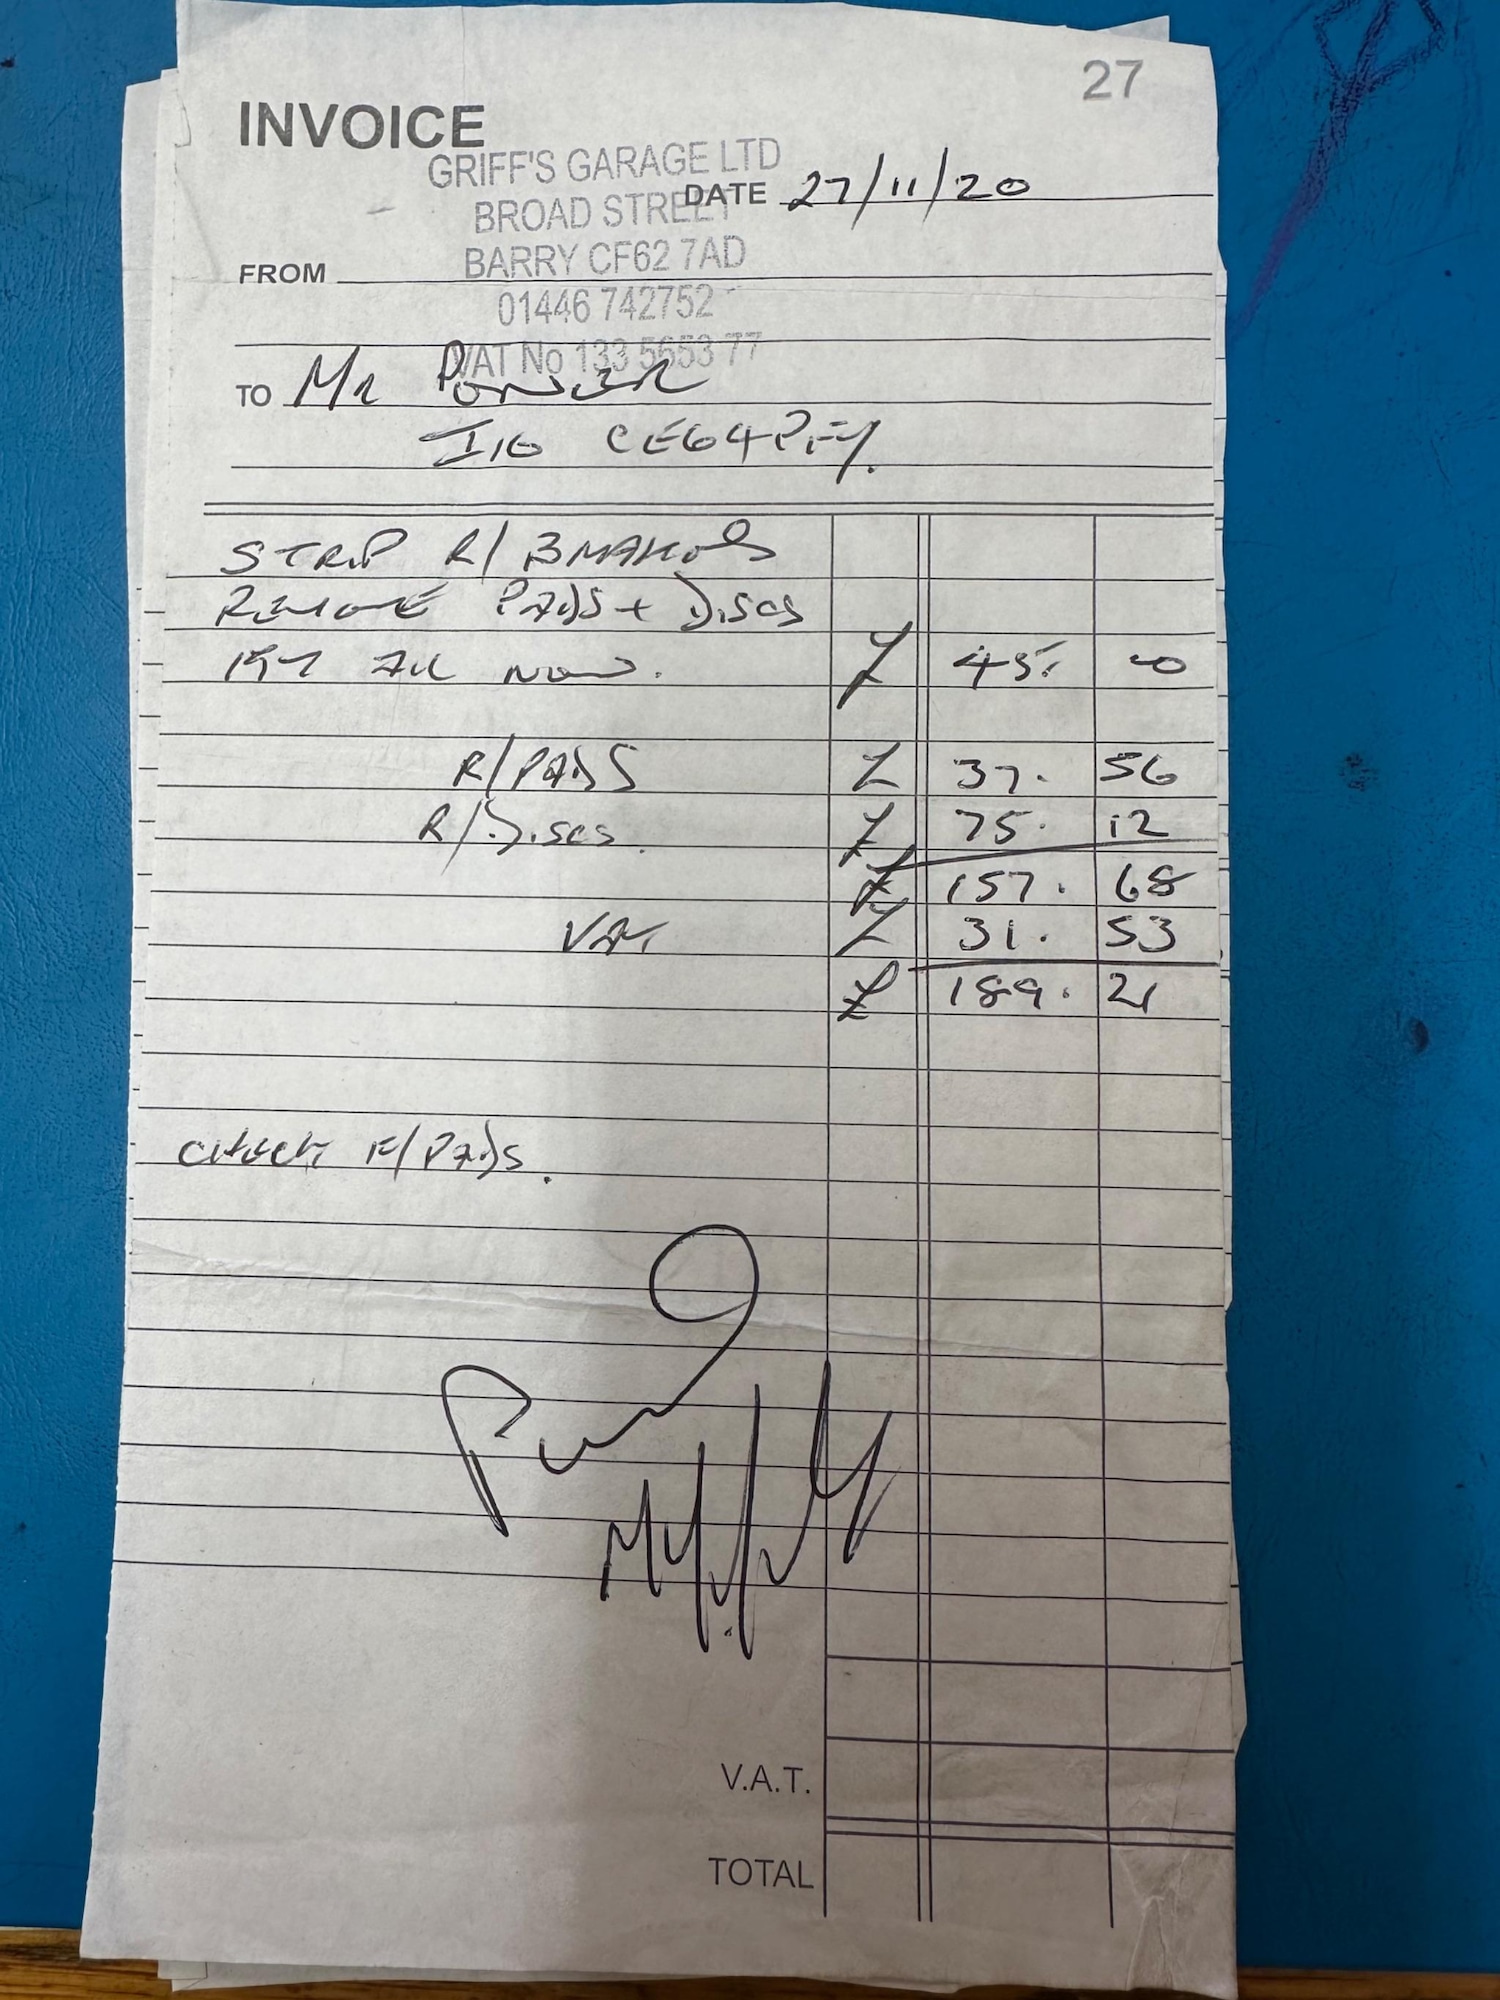 27
INVOICE
GRIFF'S GARAGE LTD
DATE 27/11/20
BROAD STREET
BARRY CF62 7AD
FROM
01446 742752
VAT No 133 5653 77
TO MR POWER
I10 CE64PFY.
STRIP R/BRAKES
REMOVE PADS + DISCS
FIT ALL NEW. £ 45. 00
R/PADS £ 37. 56
R/DISCS. £ 75. 12
£ 157. 68
VAT £ 31. 53
£ 189. 21
CHECK F/PADS.
Paid
V.A.T.
TOTAL